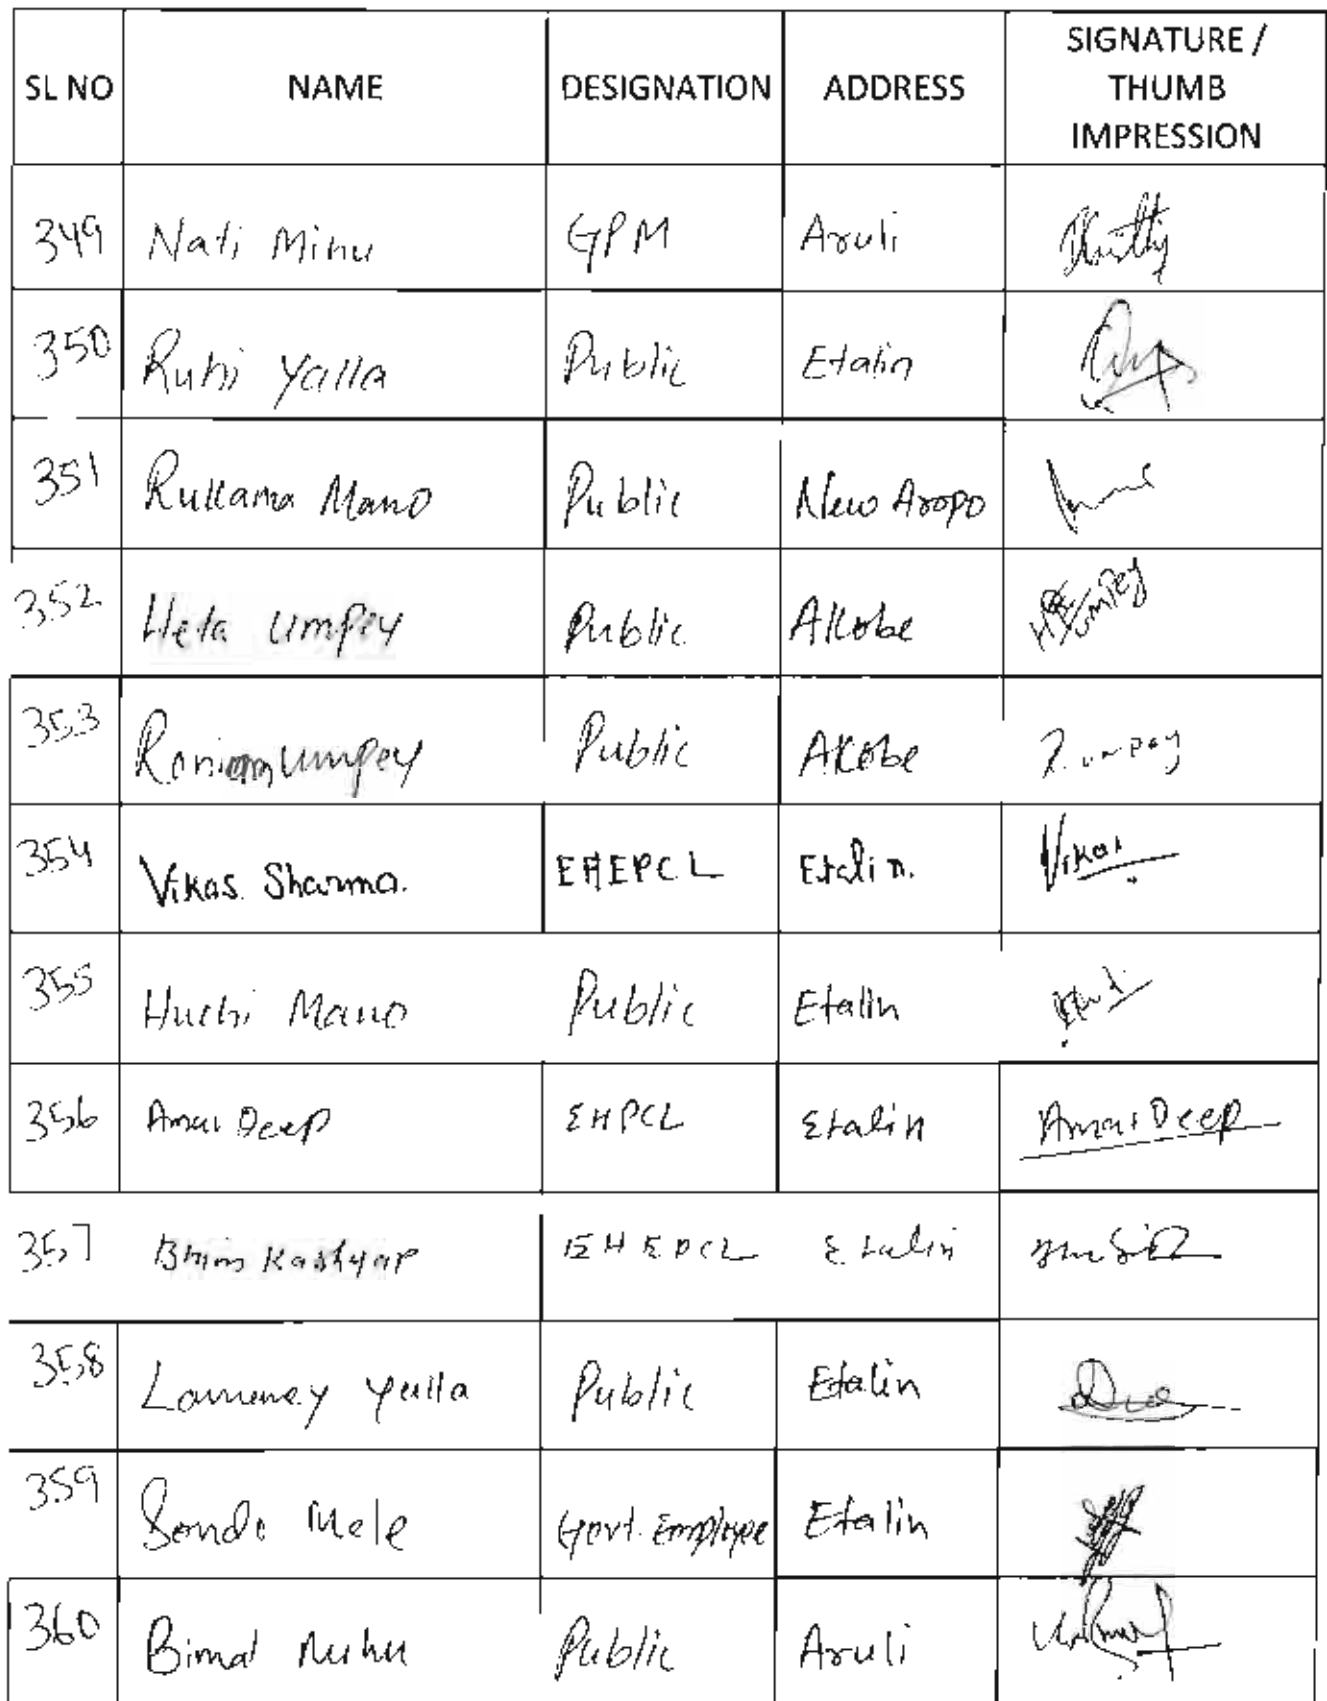 SL NO NAME DESIGNATION ADDRESS SIGNATURE / THUMB IMPRESSION
349 Nati Minu GPM Aruli
350 Ruhi Yalla Public Etalin
351 Rukkama Mano Public New Aropo
352 Heta Umpey Public Akobe HR Umpey
353 Umpey Public Akobe R. umpey
354 Vikas Sharma. EHEPCL Etalin. Vikas
355 Huchi Mano Public Etalin
356 Amar Deep EHPCL Etalin Amar Deep
357 Bhim Kashyap EHEPCL Etalin
358 Yalla Public Etalin
359 Mele Govt. Employee Etalin
360 Bimal Public Aruli